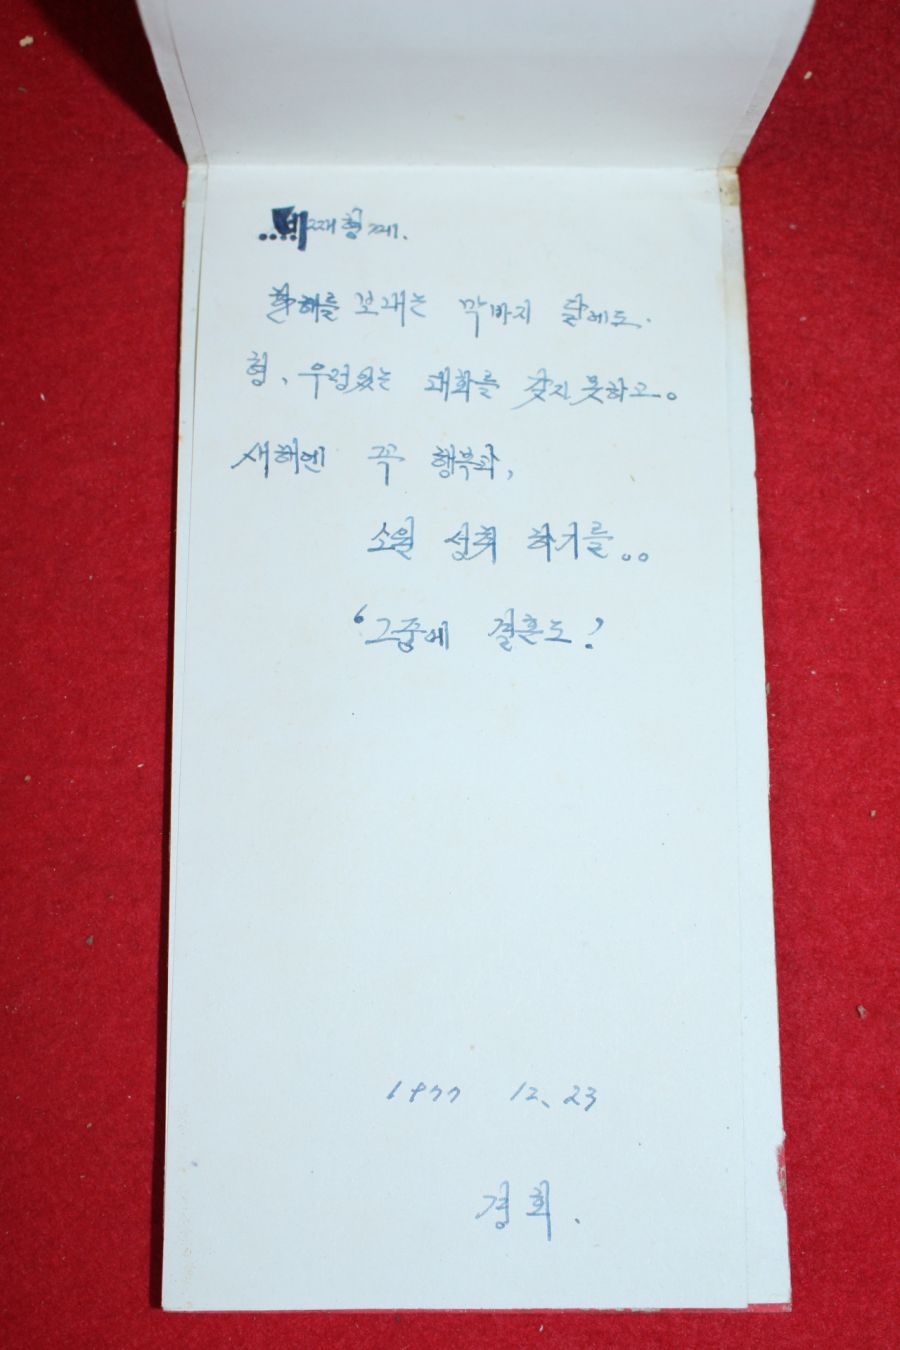 째형께.
한해를 보내는 막바지 달에도.
형, 우렁찬 대화를 갖지못하고。
새해엔 꼭 행복과,
소원 성취 하기를。。
‘그중에 결혼도!
1977 12. 23
경희.